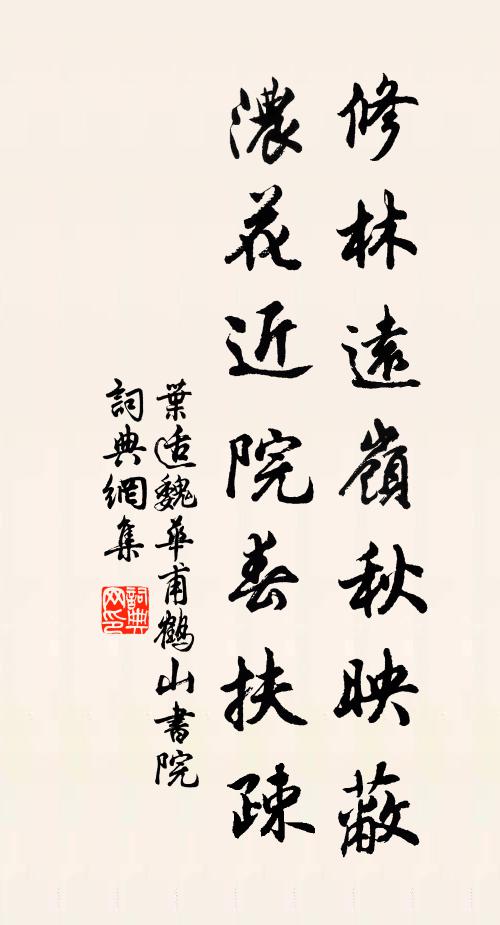 修林遠嶺秋映蔽
濃花近院春扶疎
葉适魏華甫鶴山書院
詞典網集
詞典网印